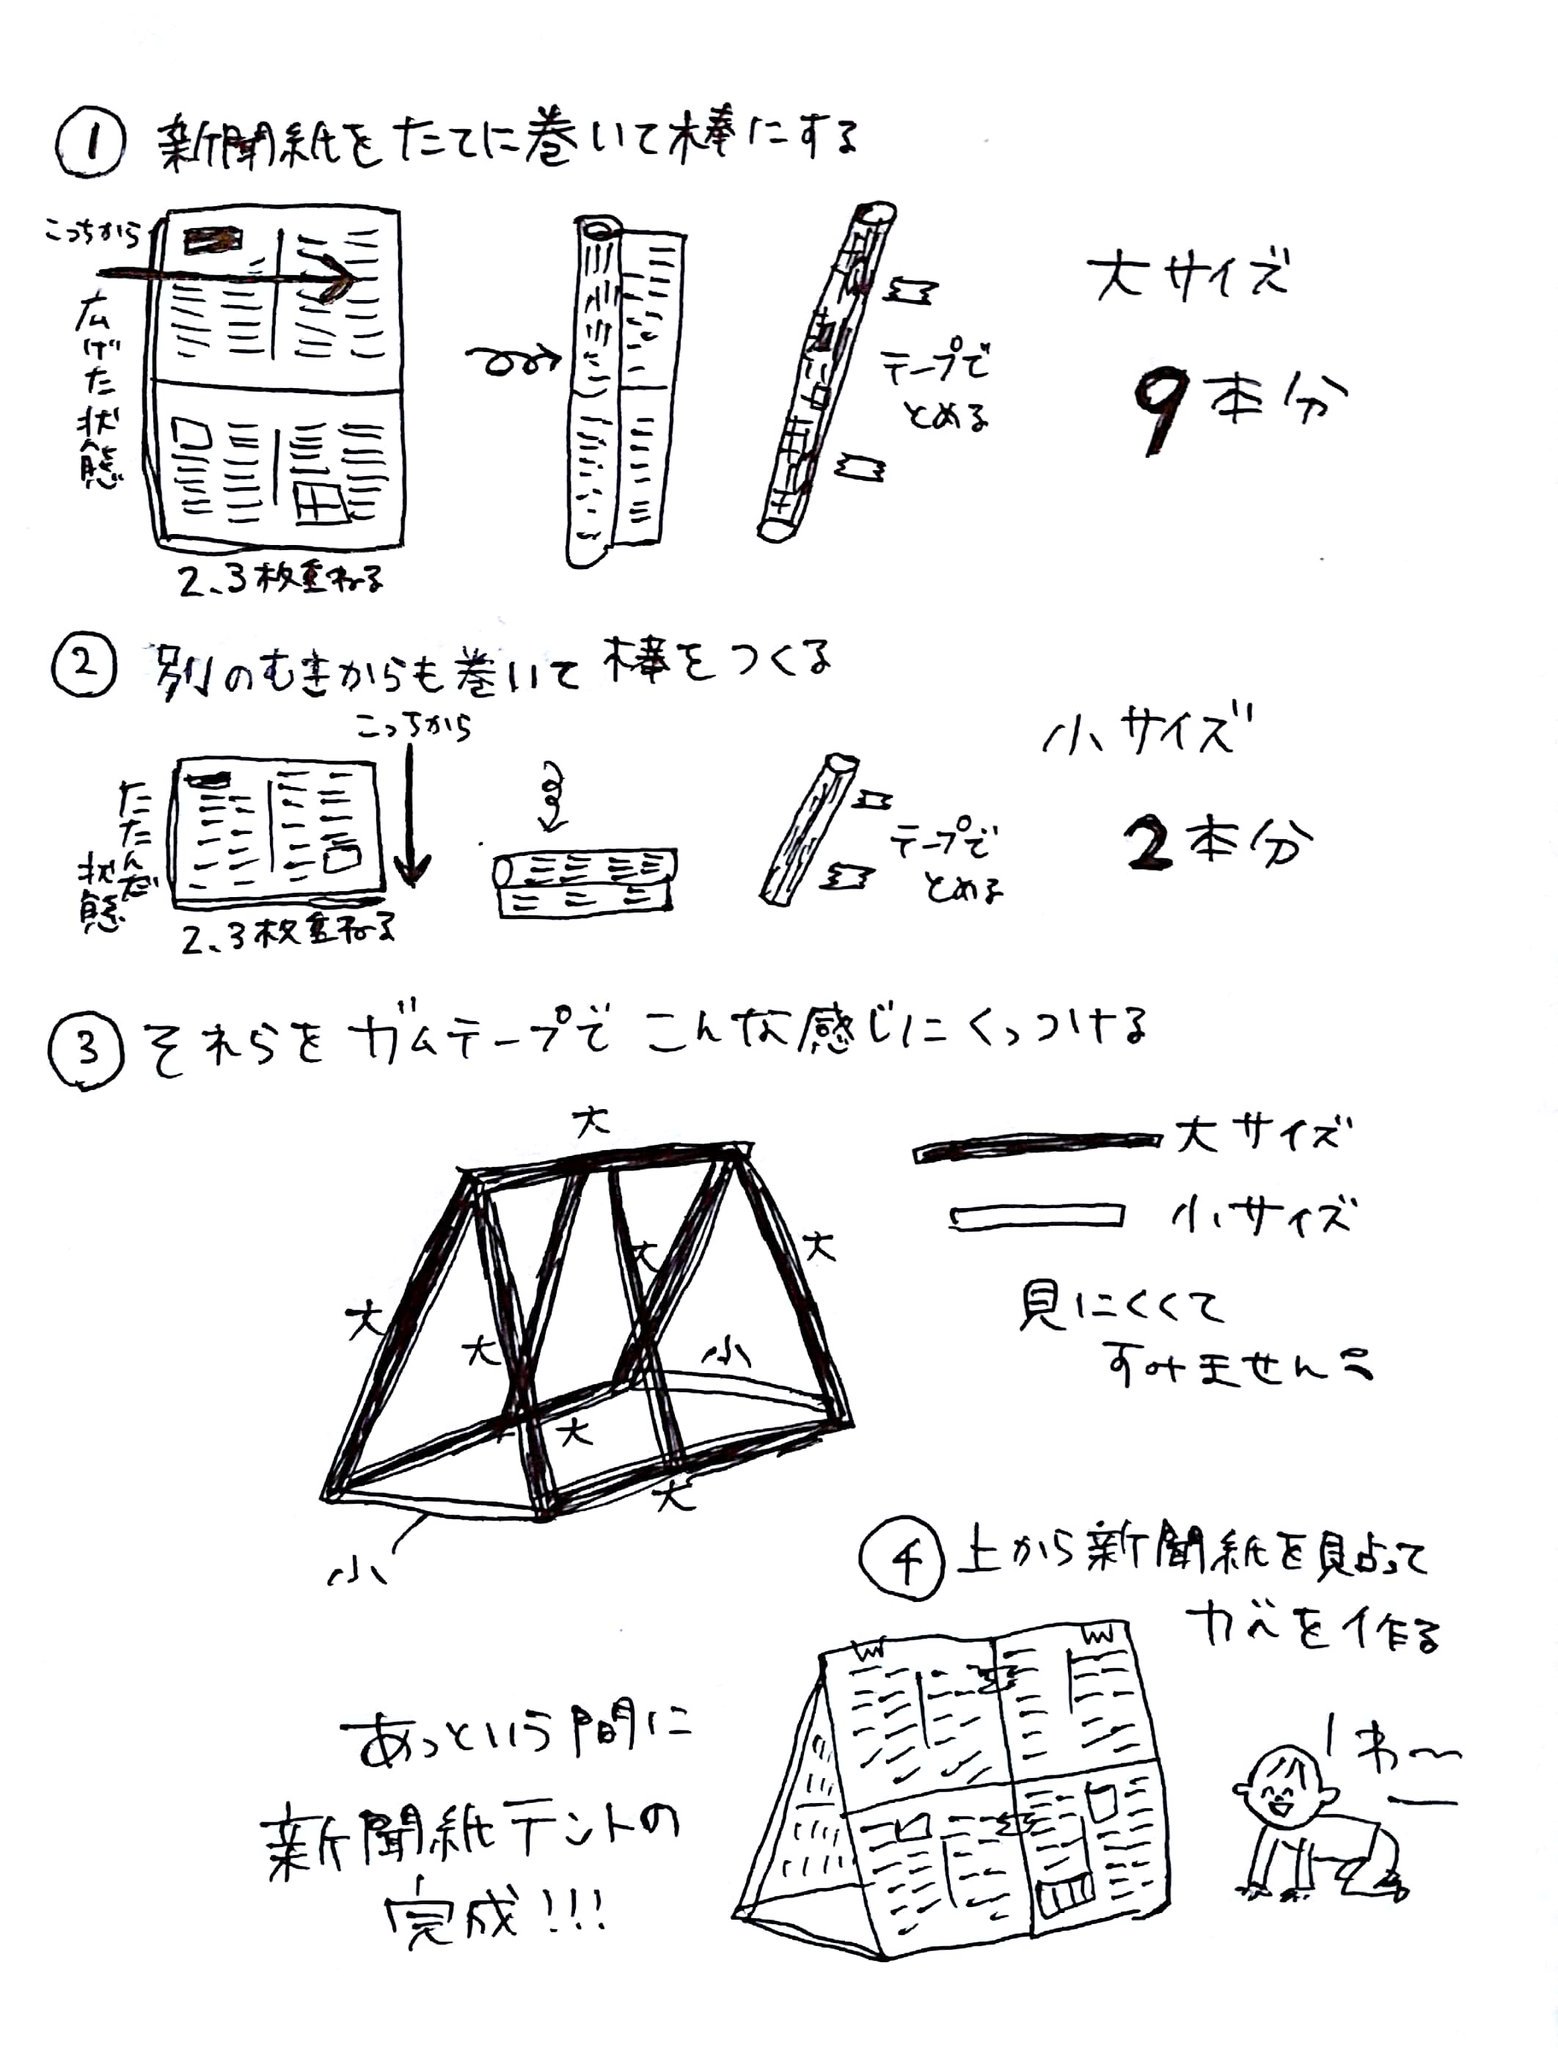 ① 新聞紙をたてに巻いて棒にする
こっちから
広げた状態
2、3枚重ねる
テープで
とめる
大サイズ
9本分
② 別のむきからも巻いて棒をつくる
こっちから
たたんだ
状態
2、3枚重ねる
テープで
とめる
小サイズ
2本分
③ それらをガムテープでこんな感じにくっつける
大
大
大
大
大
大
大
小
小
大サイズ
小サイズ
見にくくて
すみません
④ 上から新聞紙を貼って
カベを作る
わ〜
あっという間に
新聞紙テントの
完成!!!